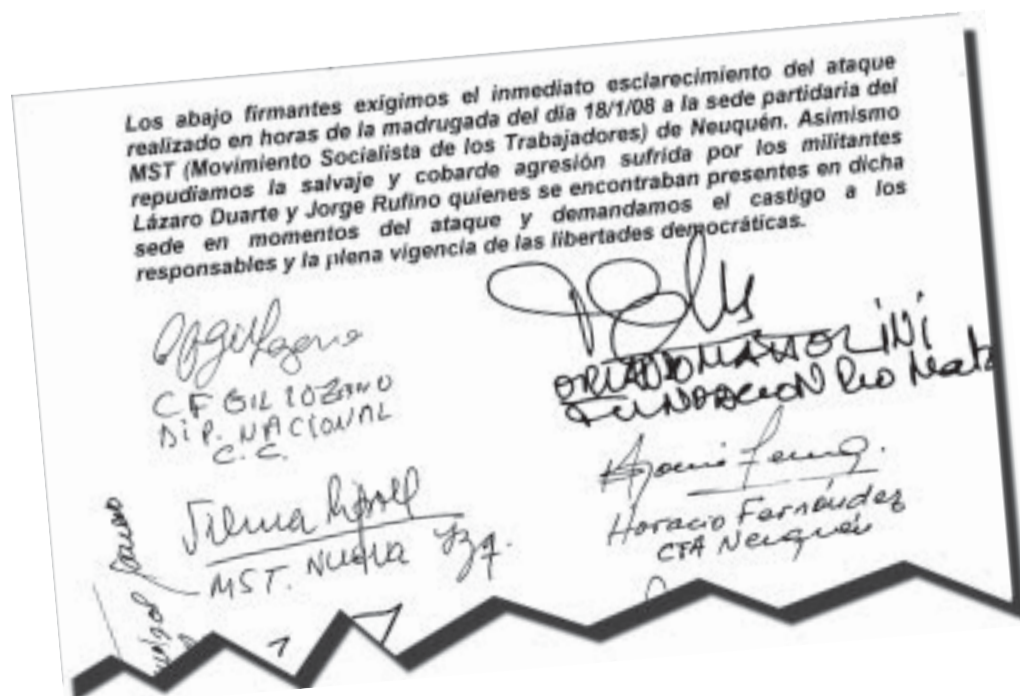 Los abajo firmantes exigimos el inmediato esclarecimiento del ataque
realizado en horas de la madrugada del día 18/1/08 a la sede partidaria del
MST (Movimiento Socialista de los Trabajadores) de Neuquén. Asimismo
repudiamos la salvaje y cobarde agresión sufrida por los militantes
Lázaro Duarte y Jorge Rufino quienes se encontraban presentes en dicha
sede en momentos del ataque y demandamos el castigo a los
responsables y la plena vigencia de las libertades democráticas.
C F GIL LOZANO
DIP. NACIONAL
C. C.
FUNDACION
Vilma
MST. Nueva Izq.
Horacio Fernández
CTA Neuquén